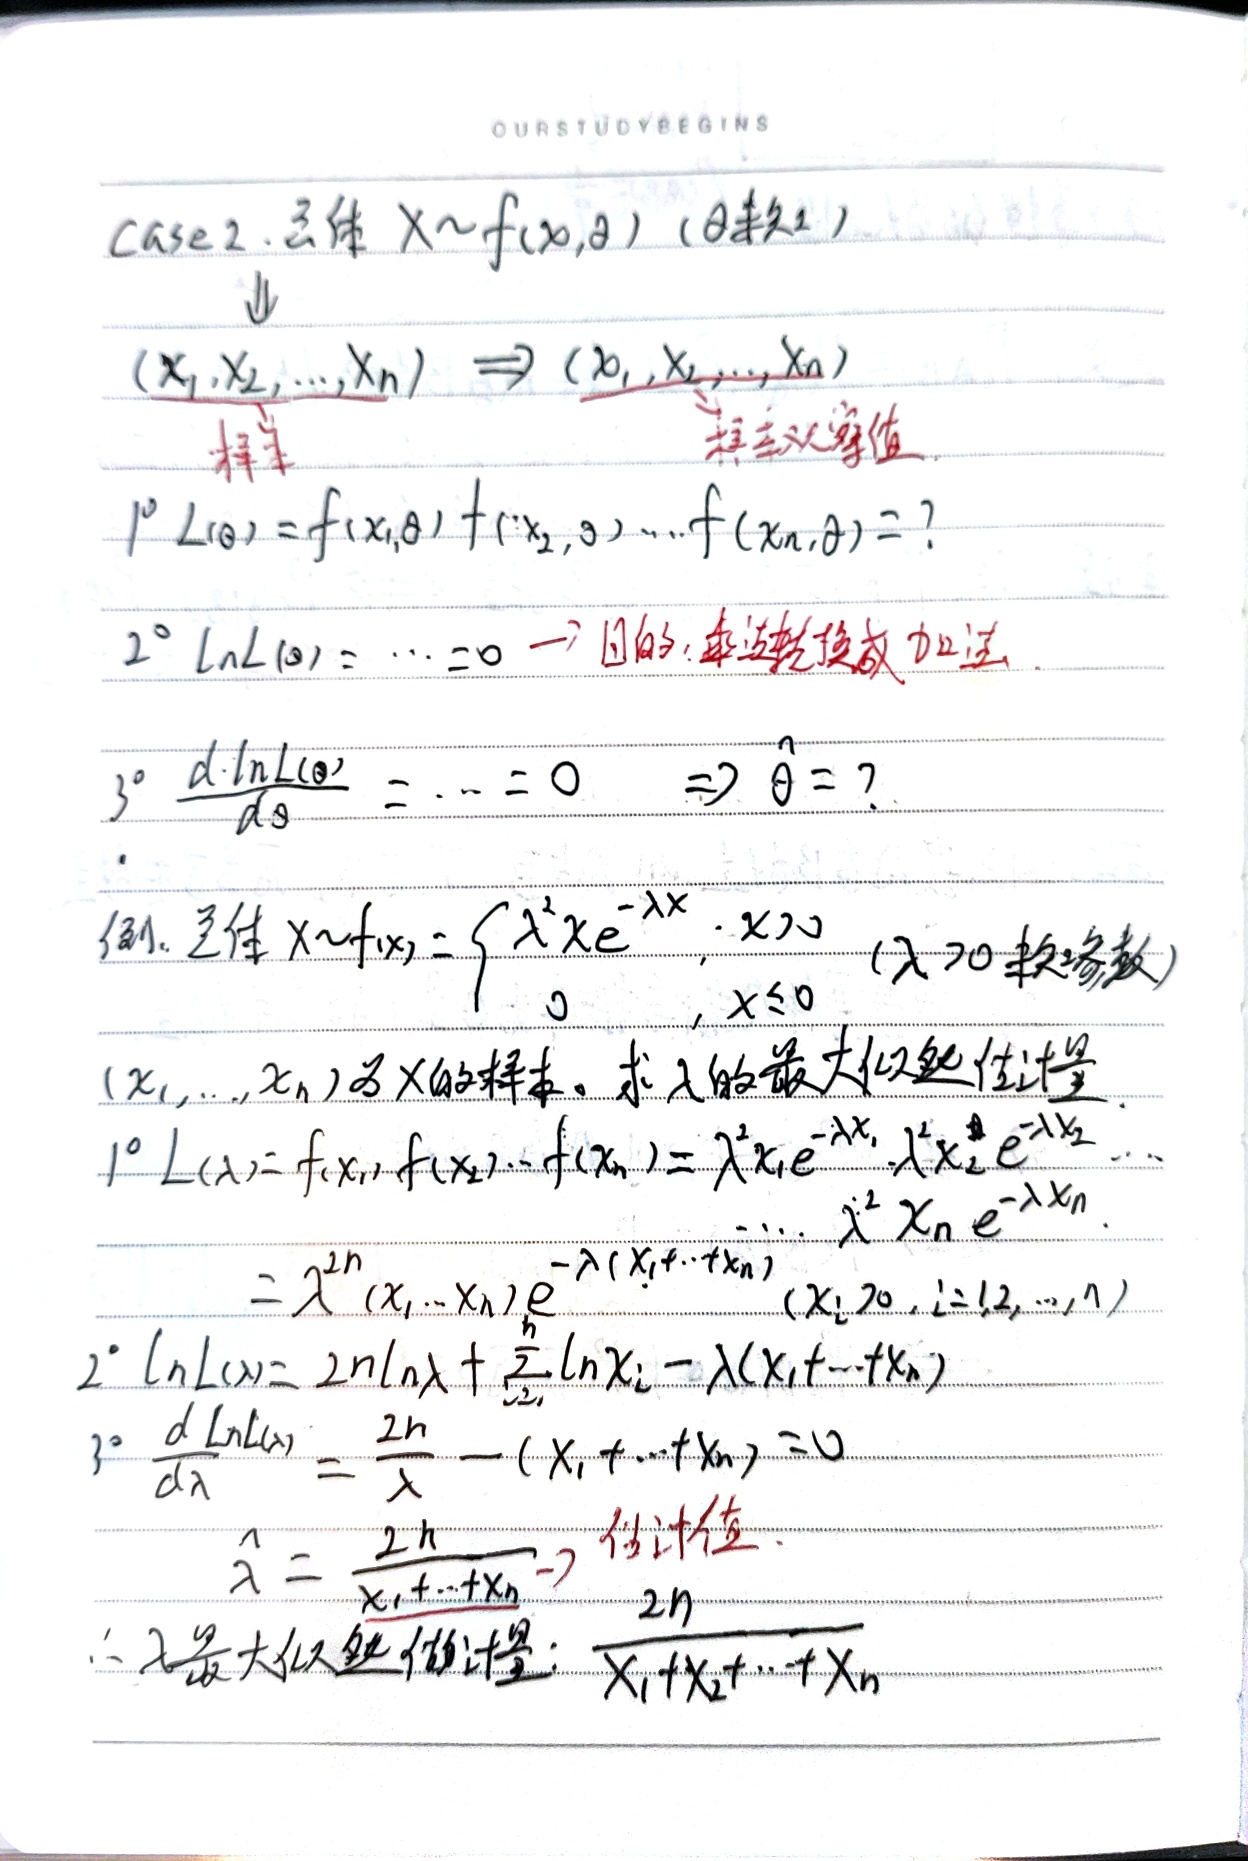 OURSTUDYBEGINS
case2. 总体 X~f(x,θ) (θ未知)
⇓
(X₁,X₂,...,Xn) ⇒ (x₁,x₂,...,xn)
样本 样本观察值.
1° L(θ)=f(x₁,θ)f(x₂,θ)...f(xn,θ)=?
2° lnL(θ)=...=0 → 目的:乘法转换成加法.
3° d·lnL(θ)/dθ = ... = 0 ⇒ θ̂=?
例. 总体 X~f(x)= { λ²xe^(-λx), x>0
0, x≤0 (λ>0 未知参数)
(x₁,...,xn)为X的样本。求λ的最大似然估计量.
1° L(λ)=f(x₁)f(x₂)...f(xn)=λ²x₁e^(-λx₁)·λ²x₂e^(-λx₂)....
..... λ²xne^(-λxn).
=λ^(2n)(x₁...xn)e^(-λ(x₁+...+xn)) (xi>0, i=1,2,...,n)
2° lnL(λ)=2nlnλ+∑(i=1→n)lnxi-λ(x₁+...+xn)
3° d lnL(λ)/dλ = 2n/λ - (x₁+...+xn)=0
λ̂ = 2n/(x₁+...+xn) → 估计值.
∴ λ最大似然估计量: 2n/(X₁+X₂+...+Xn)